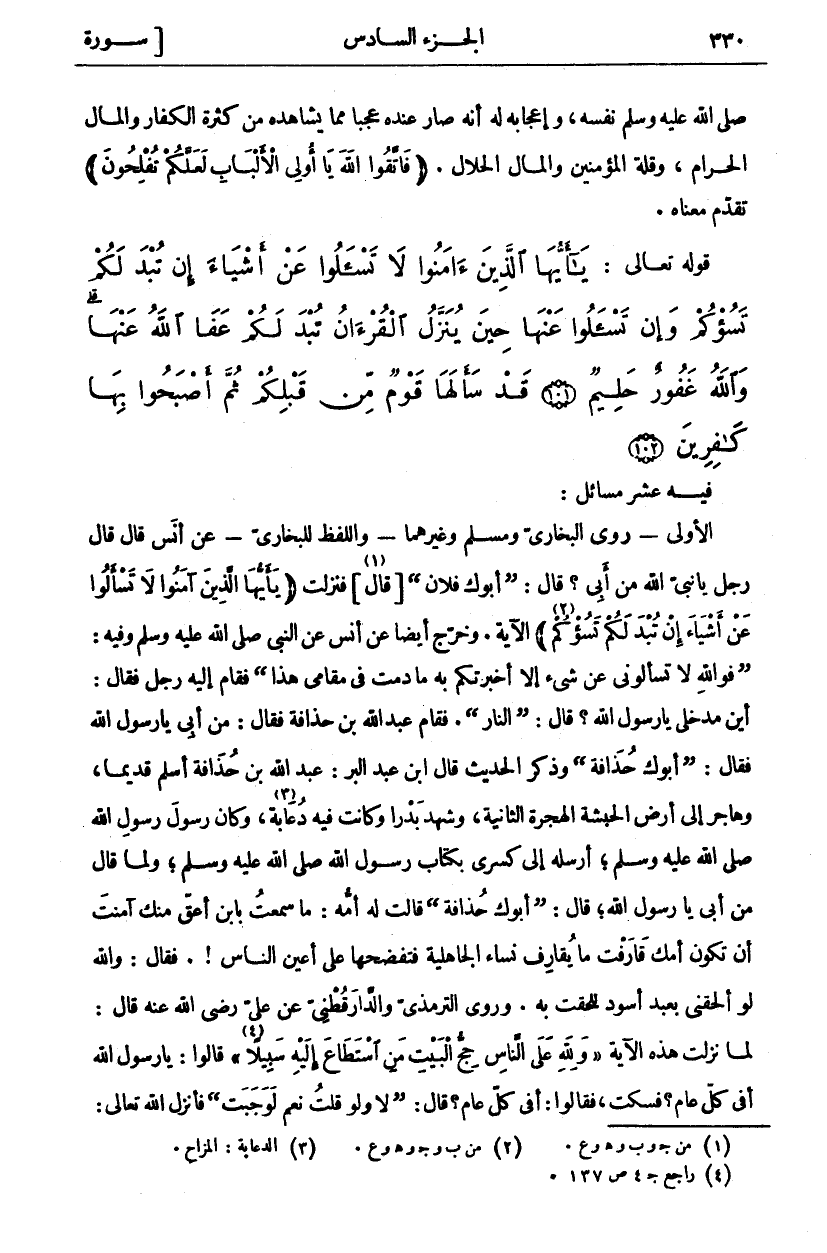 ٣٣٠ الجـزء السادس [ ســورة
صلى الله عليه وسلم نفسه، وإعجابه له أنه صار عنده عجبا مما يشاهده من كثرة الكفار والمـال
الحـرام ، وقلة المؤمنين والمـال الحلال . ﴿ فَاتَّقُوا اللهَ يَا أُولِى الْأَلْبَابِ لَعَلَّكُمْ تُفْلِحُونَ﴾
تقدّم معناه .
قوله تعـالى : يَـٰٓأَيُّهَا ٱلَّذِينَ ءَامَنُوا لَا تَسْـَٔلُوا عَنْ أَشْيَآءَ إِن تُبْدَ لَكُمْ
تَسُؤْكُمْ وَإِن تَسْـَٔلُوا عَنْهَا حِينَ يُنَزَّلُ ٱلْقُرْءَانُ تُبْدَ لَكُمْ عَفَا ٱللَّهُ عَنْهَا ۗ
وَٱللَّهُ غَفُورٌ حَلِيمٌ ﴿١٠١﴾ قَدْ سَأَلَهَا قَوْمٌ مِّن قَبْلِكُمْ ثُمَّ أَصْبَحُوا بِهَا
كَـٰفِرِينَ ﴿١٠٢﴾
فيـه عشر مسائل :
الأولى — روى البخارىّ ومسـلم وغيرهمـا — واللفظ للبخارىّ — عن أنَس قال قال
رجل يانبىّ الله من أَبِى ؟ قال : ”أبوك فلان“ [قال](١) فنزلت ﴿ يَأَيُّهَا الَّذِينَ آمَنُوا لَا تَسْأَلُوا
عَنْ أَشْيَاءَ إِنْ تُبْدَ لَكُمْ تَسُؤْكُمْ﴾(٢) الآية . وخرّج أيضا عن أنس عن النبى صلى الله عليه وسلم وفيه :
”فوالله لا تسألونى عن شىء إلا أخبرتكم به ما دمت فى مقامى هذا“ فقام إليه رجل فقال :
أين مدخلى يارسول الله ؟ قال : ”النار“ . فقام عبدالله بن حذافة فقال : من أبِى يارسول الله
فقال : ”أبوك حُذَافة“ وذكر الحديث قال ابن عبد البر : عبد الله بن حُذَافة أسلم قديمـا،
وهاجر إلى أرض الحبشة الهجرة الثانية، وشهد بَدْرا وكانت فيه دُعَابة(٣)، وكان رسولَ رسولِ الله
صلى الله عليه وسلم ؛ أرسله إلى كسرى بكتاب رسـول الله صلى الله عليه وسـلم ؛ ولمـا قال
من أبى يا رسول الله؛ قال : ”أبوك حُذافة“ قالت له أمُّه : ما سمعتُ بابن أعقّ منك آمنتَ
أن تكون أمك قَارَفْت ما يُقارِف نساء الجاهلية فتفضحها على أعين النـاس ! . فقال : والله
لو ألحقنى بعبد أسود للحقت به . وروى الترمذىّ والدَّارَقُطْنِىّ عن علىّ رضى الله عنه قال :
لمـا نزلت هذه الآية « وَلِلَّهِ عَلَى النَّاسِ حِجُّ الْبَيْتِ مَنِ ٱسْتَطَاعَ إِلَيْهِ سَبِيلًا(٤)» قالوا : يارسول الله
أفى كلّ عام؟ فسكت ، فقالوا : أفى كلّ عام؟ قال: ”لا ولو قلتُ نعم لَوَجَبَت“ فأنزل الله تعالى :
(١) من ج و ب و ه و ع . (٢) من ب و ج و ه و ع . (٣) الدعابة : المزاح .
(٤) راجع جـ ٤ ص ١٣٧ .